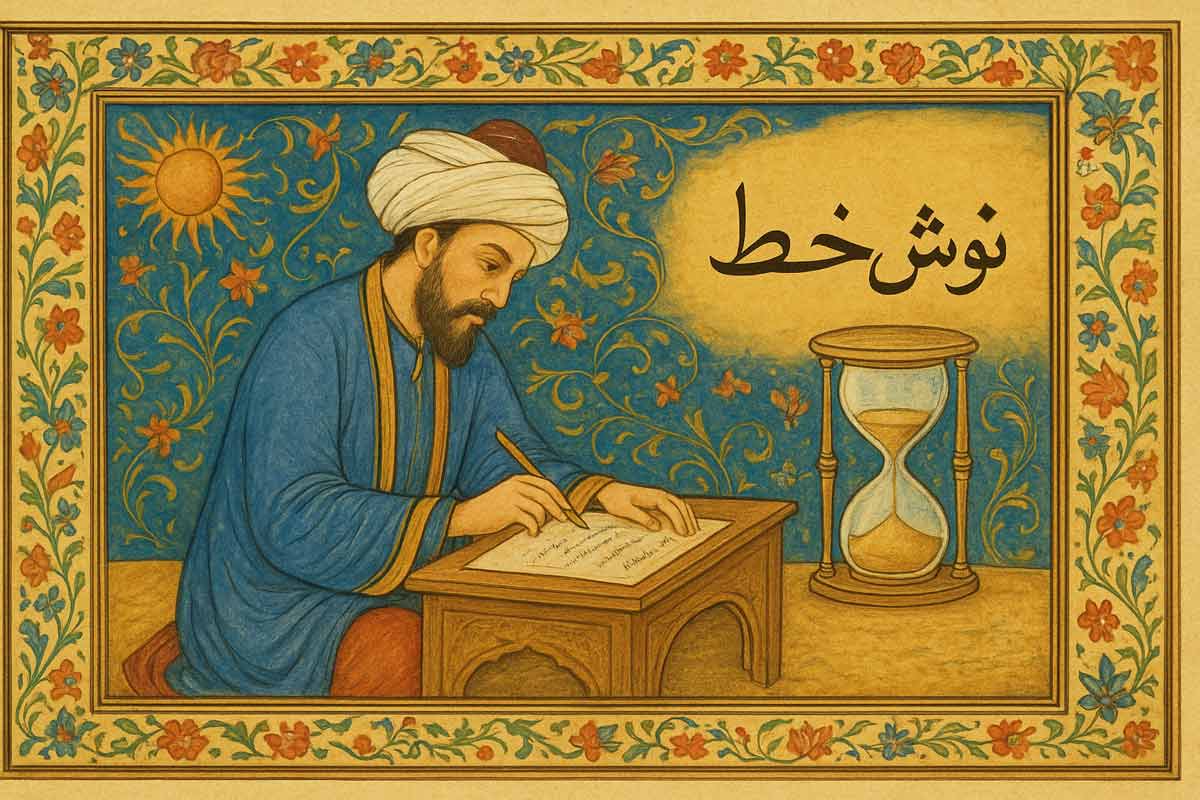 نوش خط